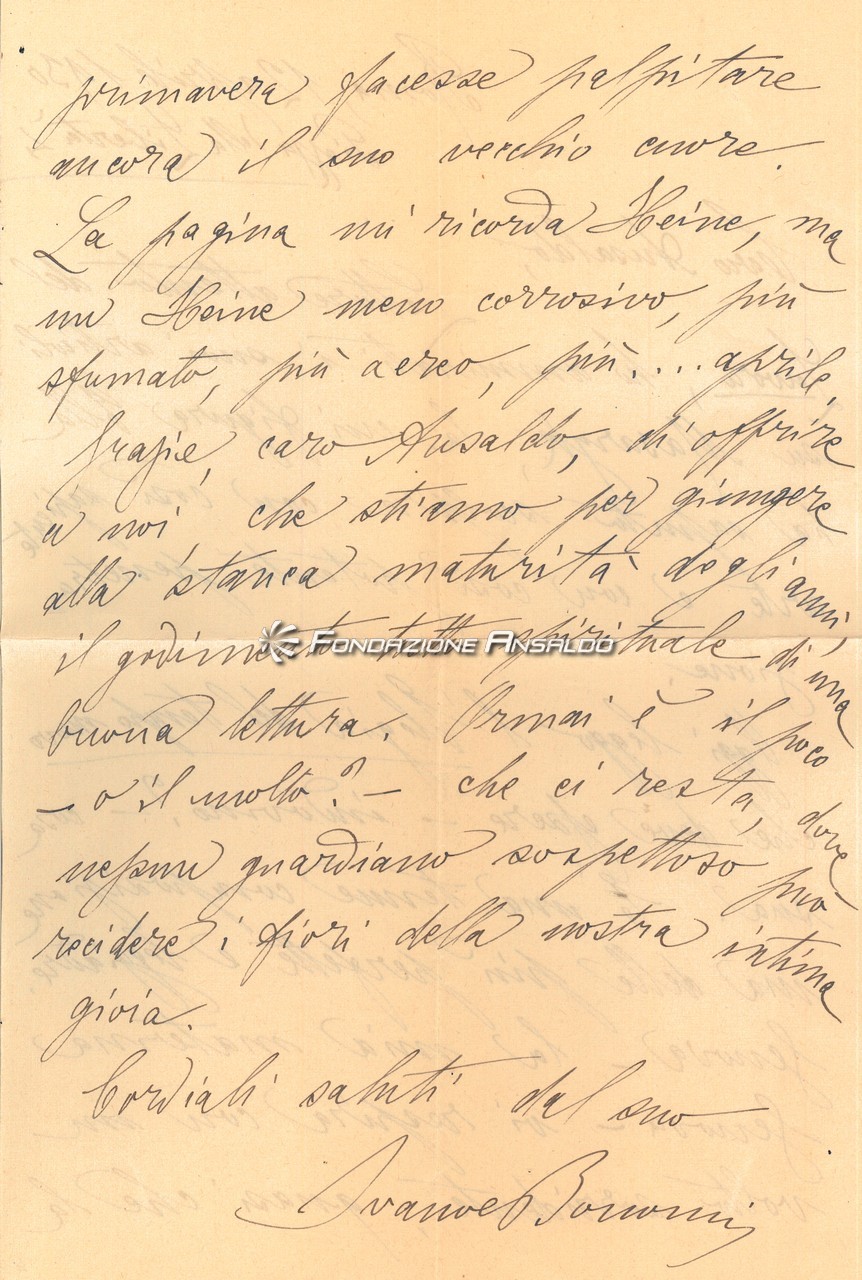 primavera facesse palpitare
ancora il suo vecchio cuore.
La pagina mi ricorda Heine, ma
un Heine meno corrosivo, più
sfumato, più aereo, più.... aprile.
Grazie, caro Ansaldo, di offrire
a noi, che stiamo per giungere
alla stanca maturità degli anni,
il godimento tutto spirituale di una
FONDAZIONE ANSALDO
buona lettura. Ormai è il poco
– o il molto? – che ci resta, dove
nessun guardiano sospettoso può
recidere i fiori della nostra intima
gioia.
Cordiali saluti dal suo
Ivanoe Bonomi